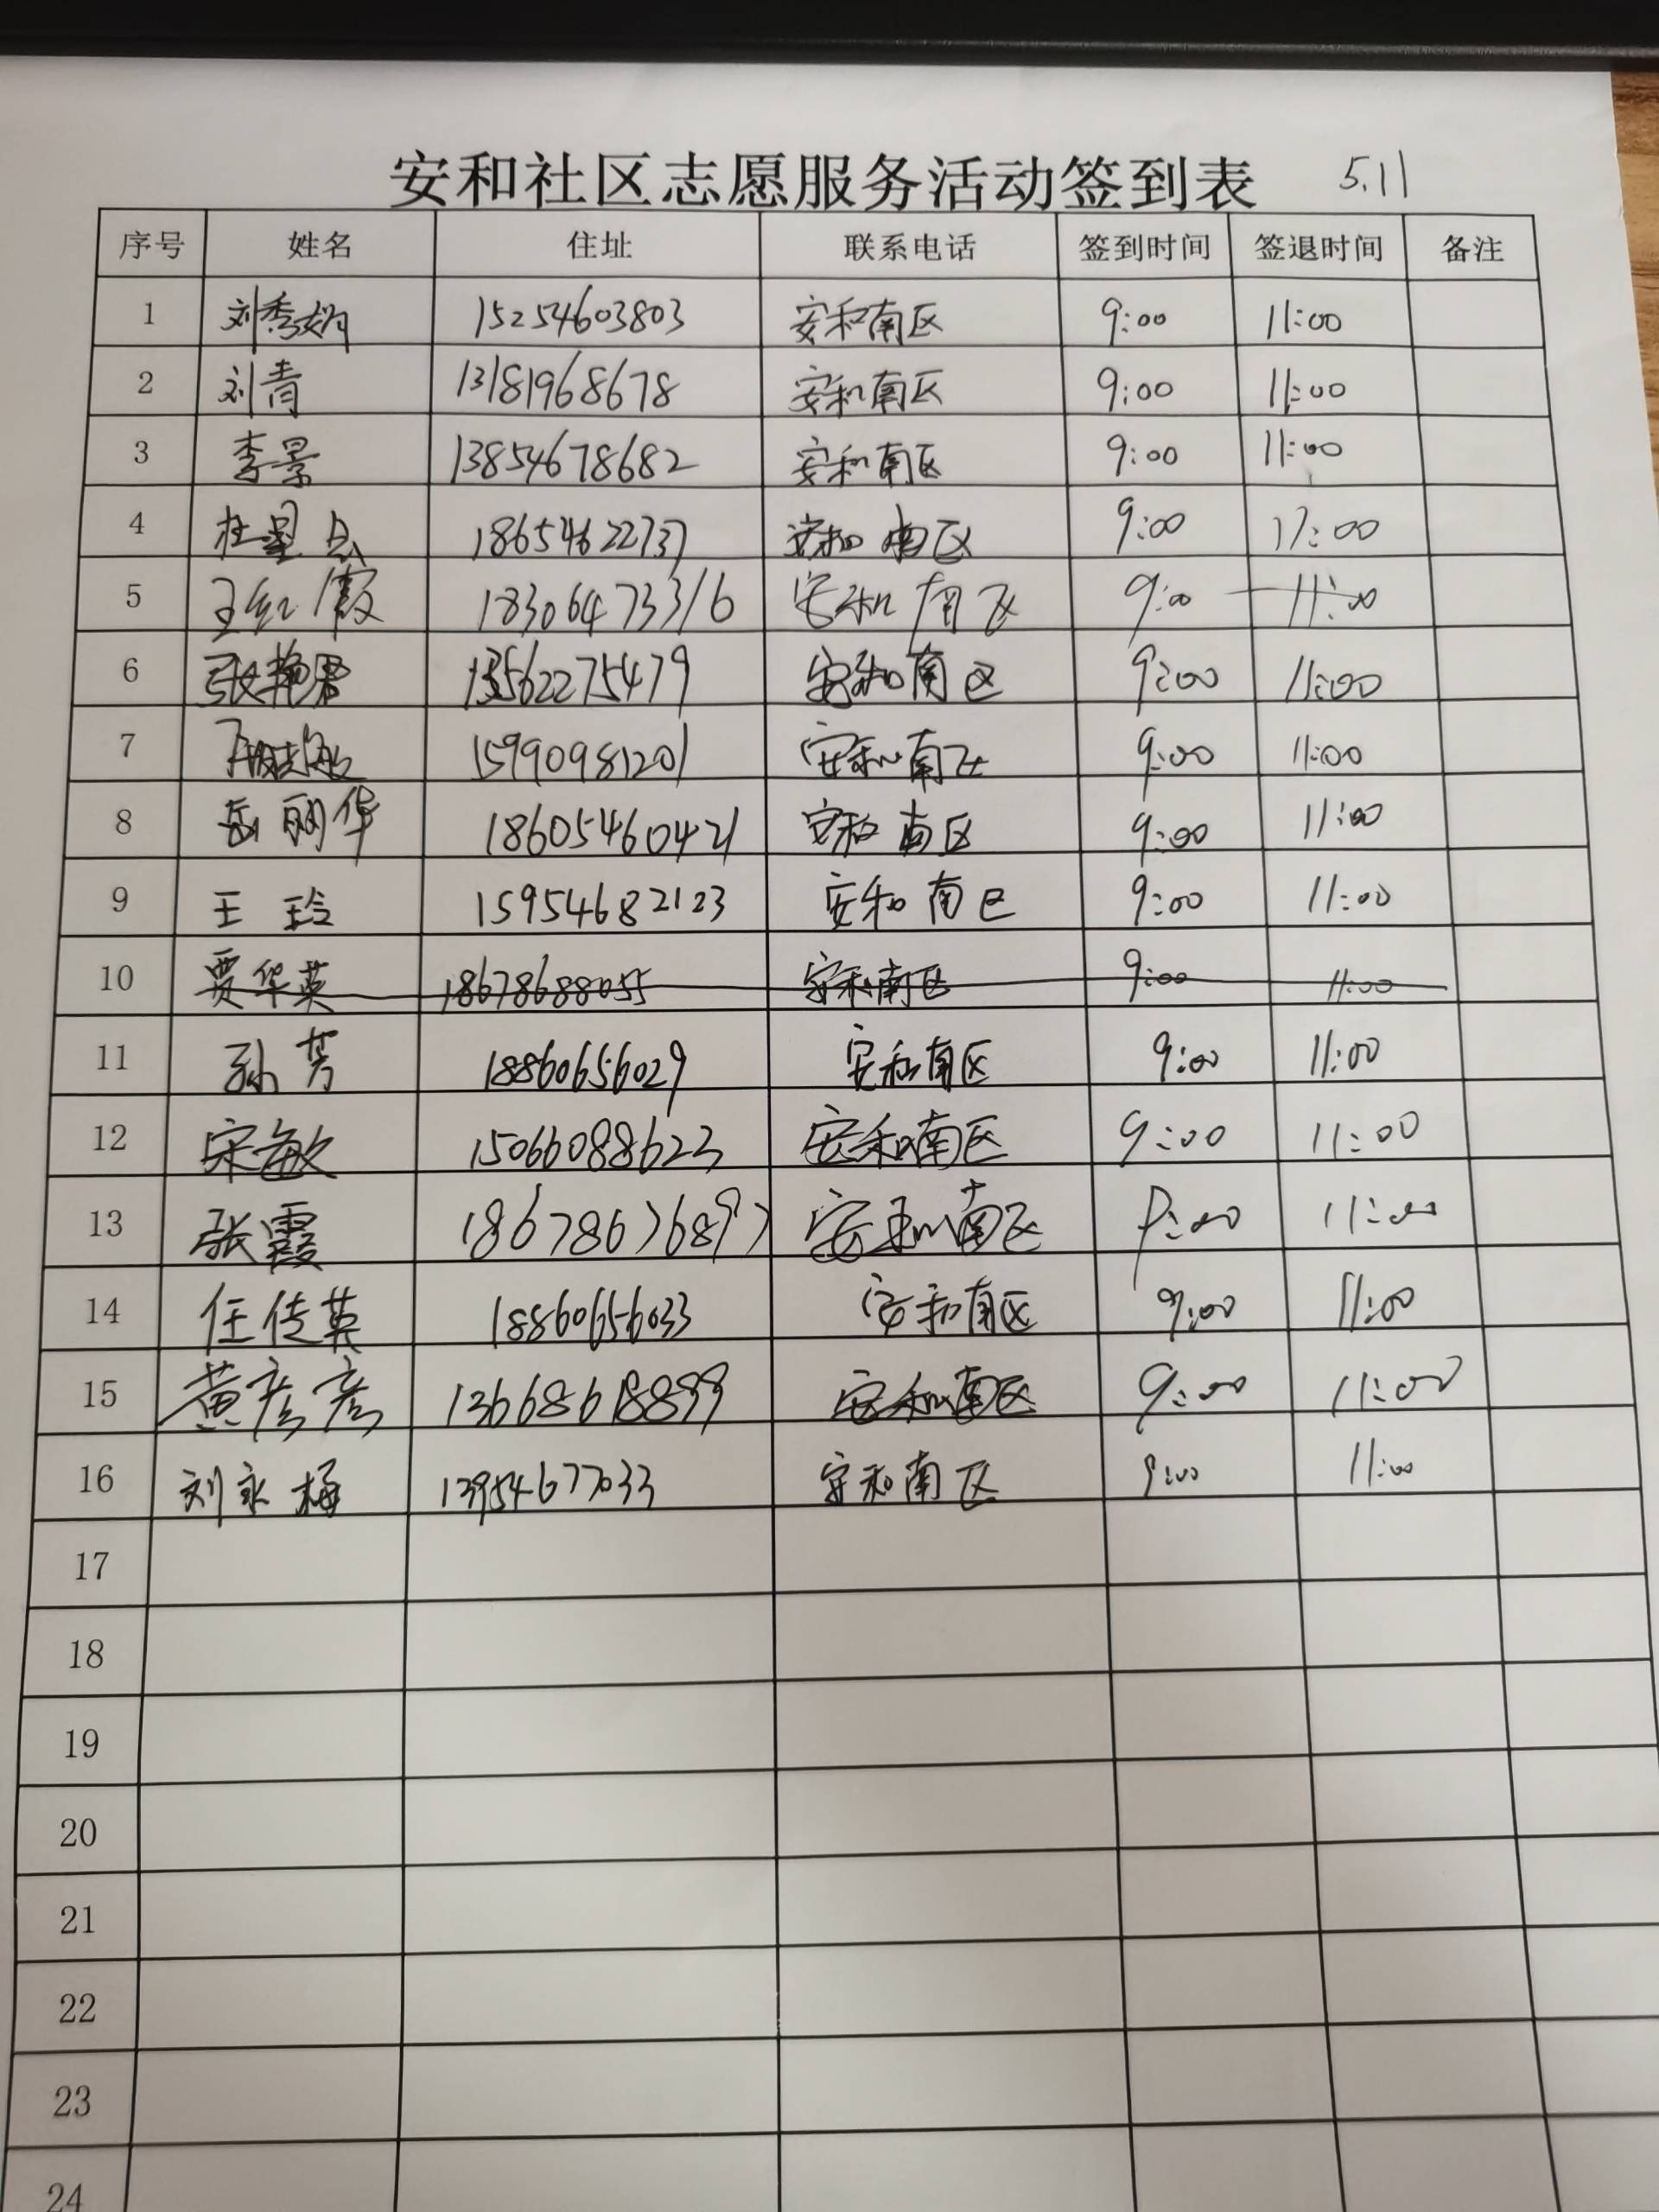 安和社区志愿服务活动签到表 5.11
序号 姓名 住址 联系电话 签到时间 签退时间 备注
1 刘秀娟 15254603803 安和南区 9:00 11:00
2 刘青 13181968678 安和南区 9:00 11:00
3 李景 13854678682 安和南区 9:00 11:00
4 杜星点 18654622737 安和南区 9:00 11:00
5 王红霞 18306473316 安和南区 9:00 11:00
6 张艳君 13562275479 安和南区 9:00 11:00
7 15990981201 安和南区 9:00 11:00
8 岳丽华 18605460421 安和南区 9:00 11:00
9 王玲 15954682123 安和南区 9:00 11:00
10 贾华英 18678688055 安和南区 9:00 11:00
11 孙芳 18860656029 安和南区 9:00 11:00
12 宋敏 15066088623 安和南区 9:00 11:00
13 张霞 18678676897 安和南区 9:00 11:00
14 任传英 18860656033 安和南区 9:00 11:00
15 黄彦彦 13668618899 安和南区 9:00 11:00
16 刘永梅 13954677033 安和南区 9:00 11:00
17
18
19
20
21
22
23
24